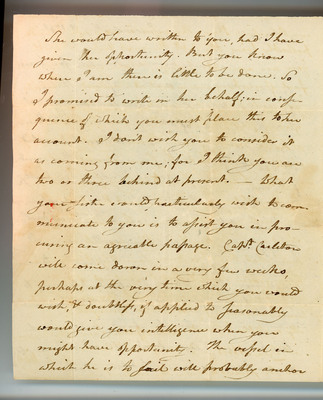 She would have written to you, had I have
given her opportunity. But you know
where I am there is little to be done. So
I promised to write in her behalf; in conse-
quence of which you must place this to her
account. I don't wish you to consider it
as coming from me; for I think you are
two or three behind at present. — What
your sister would particularly wish to com-
municate to you is to assist you in pro-
curing an agreeable passage. Capt. Carleton
will come down in a very few weeks,
perhaps at the very time which you would
wish, & doubtless, if applied to seasonably
would give you intelligence when you
might have opportunity. The vessel in
which he is to sail will probably anchor